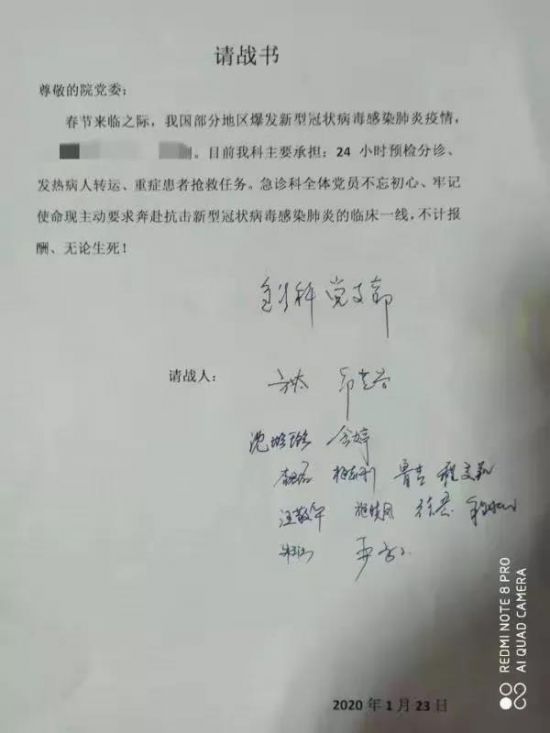 请战书
尊敬的院党委：
春节来临之际，我国部分地区爆发新型冠状病毒感染肺炎疫情，
。目前我科主要承担：24 小时预检分诊、
发热病人转运、重症患者抢救任务。急诊科全体党员不忘初心、牢记
使命现主动要求奔赴抗击新型冠状病毒感染肺炎的临床一线，不计报
酬、无论生死！
急诊科党支部
请战人：
余婷
鲁吉
汪敬军
2020 年 1 月 23 日
REDMI NOTE 8 PRO
AI QUAD CAMERA